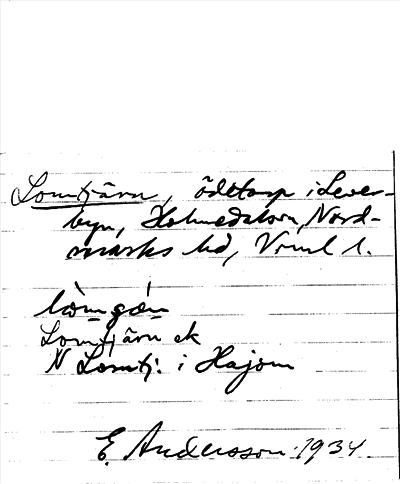 Lomtjärn, ödetorp i Lever-
byn, Holmedalssn, Nord-
marks hd, Vrml l.
lòmgæ̀n
Lomtjärn ek
N Lomtj: i Hajom
E. Andersson 1934